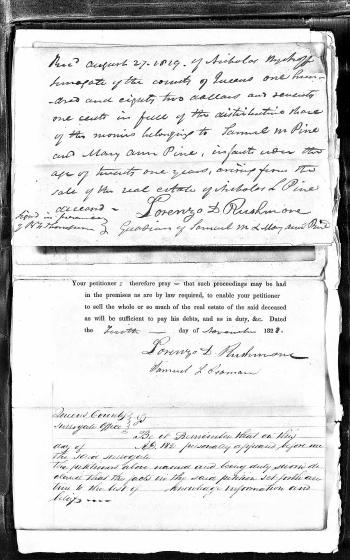 Rec'd August 27. 1829. of Nicholas Wyckoff
surrogate of the county of Queens one hun-
dred and eighty two dollars and seventy
one cents in full of the distributive share
of the monies belonging to Samuel M Pine
and Mary Ann Pine, infants under the
age of twenty one years, arising from the
sale of the real estate of Nicholas L Pine
deceased -
Lorenzo D Rushmore
Guardian of Samuel M & Mary Ann Pine
Your petitioners therefore pray — that such proceedings may be had
in the premises as are by law required, to enable your petitioner
to sell the whole or so much of the real estate of the said deceased
as will be sufficient to pay his debts, and as in duty, &c. Dated
the Tenth day of November 1828.
Lorenzo D. Rushmore
Samuel L Seaman
Queens County } ss
Surrogate Office }
Be it Remembered that on this
day of A.D. 182 personally appeared before me
the said surrogate
the petitioners above named and being duly sworn de-
clared that the facts in the said petition set forth are
true to the best of knowledge information and
belief